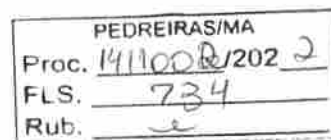 PEDREIRAS/MA
Proc. 1411002/2022
FLS. 734
Rub.